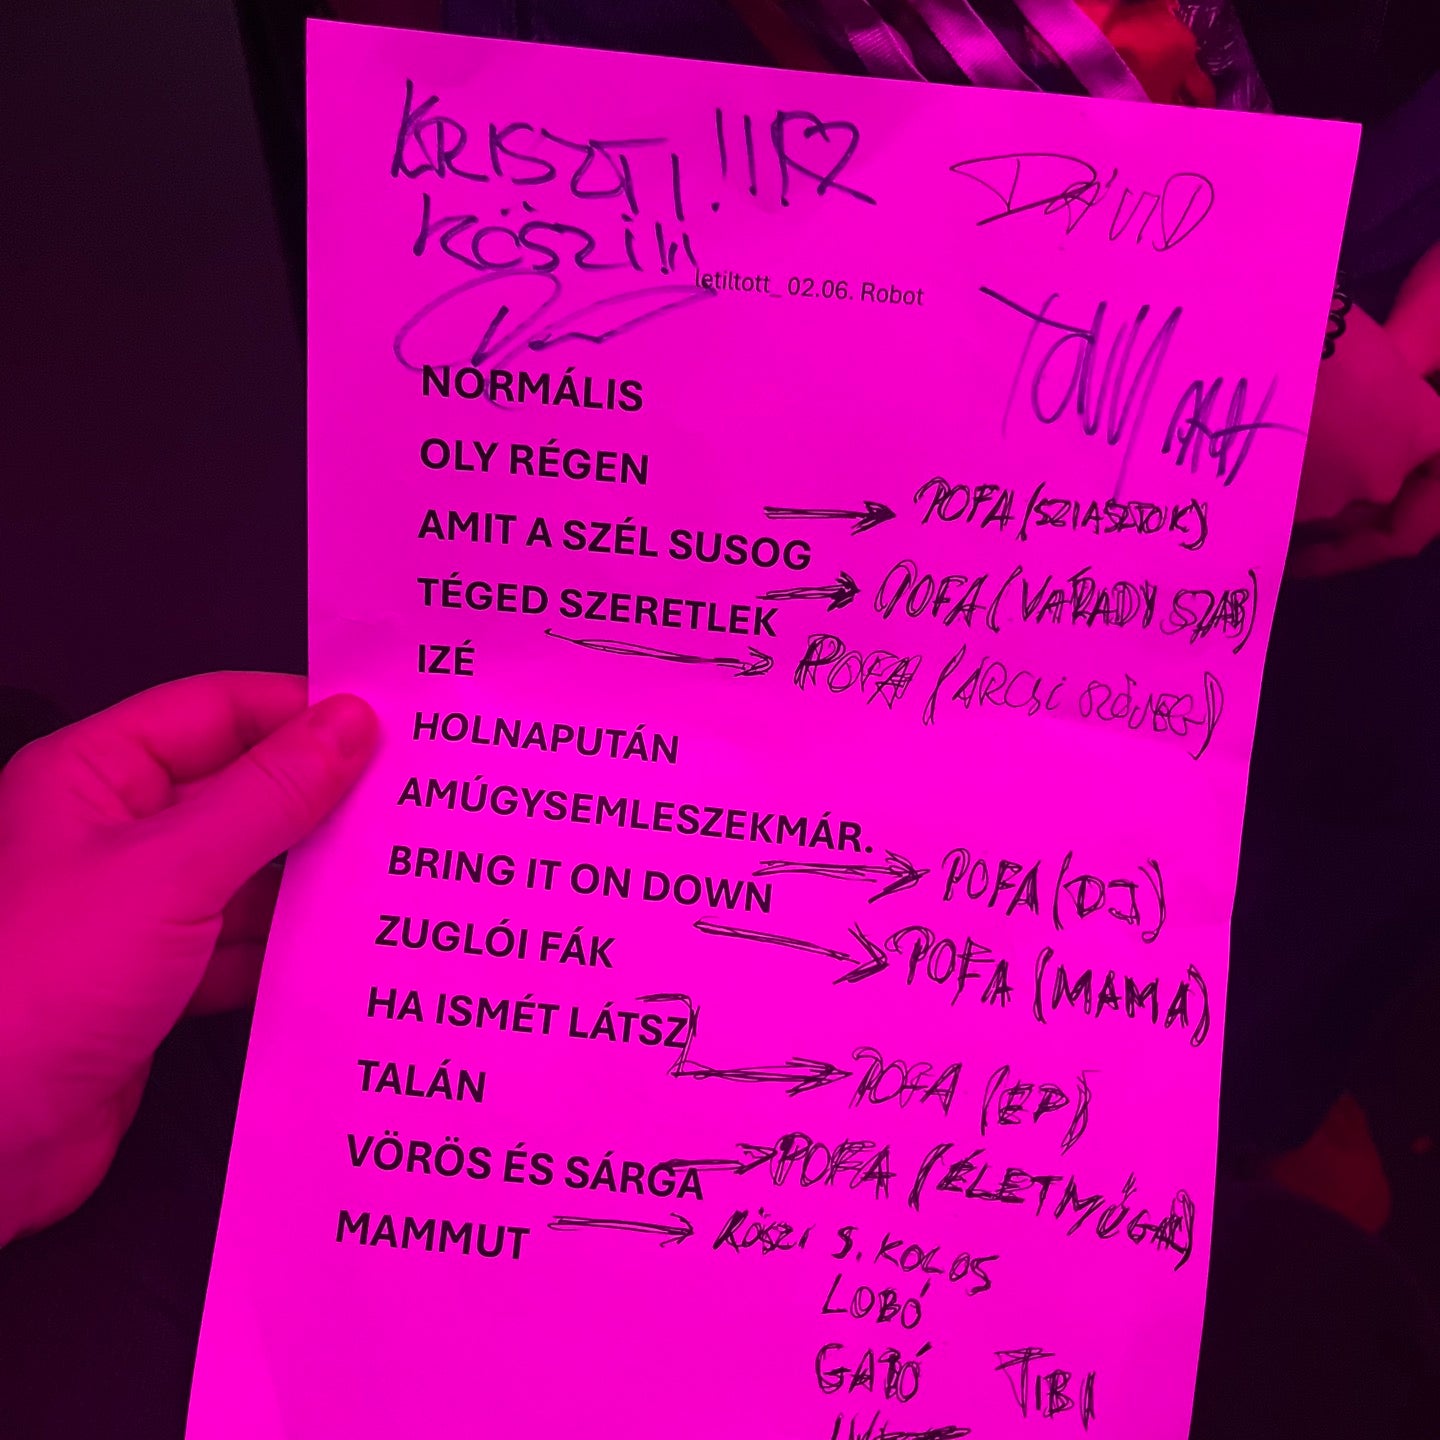 KRISZTI!!!♡
KÖSZI!!!
DÁVID
letiltott_ 02.06. Robot
NORMÁLIS
OLY RÉGEN
→ POFA (SZIASZTOK)
AMIT A SZÉL SUSOG
→ POFA (VÁRADY SZAB)
TÉGED SZERETLEK
→ POFA (ÁRCSI SZÖVEG)
IZÉ
HOLNAPUTÁN
AMÚGYSEMLESZEKMÁR.
→ POFA (DJ)
BRING IT ON DOWN
→ POFA (MAMA)
ZUGLÓI FÁK
HA ISMÉT LÁTSZ
→ POFA (EP)
TALÁN
VÖRÖS ÉS SÁRGA → POFA (ÉLETMŰ
MAMMUT → KÖSZI S. KOLOS
LOBÓ
GABÓ TIBI